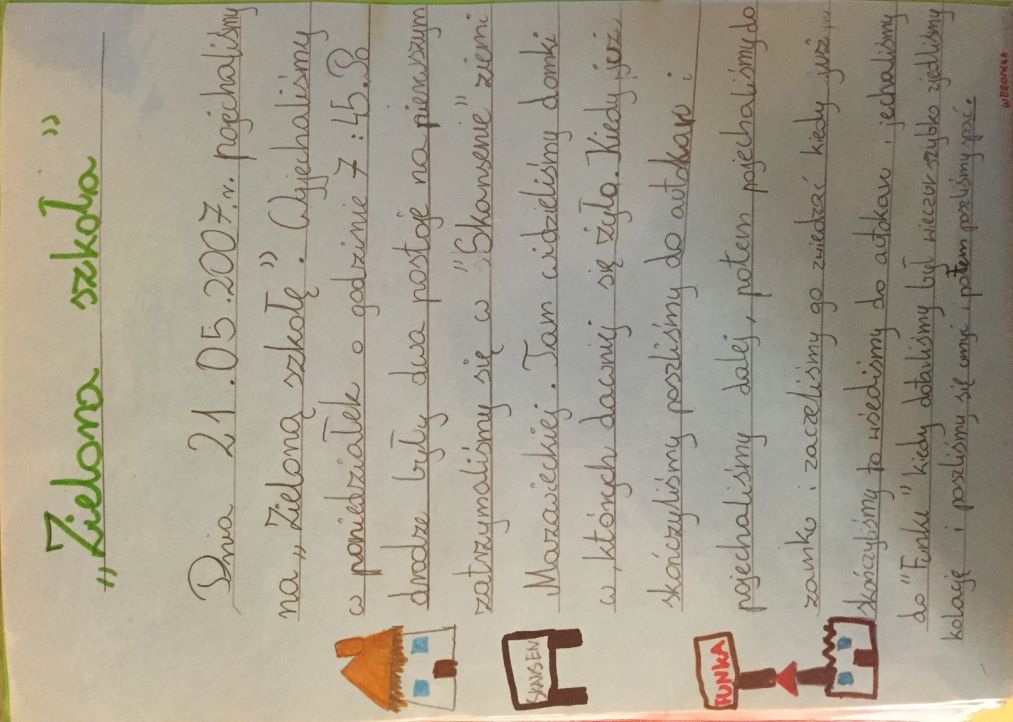 "Zielona szkoła"
Dnia 21.05.2007r. pojechaliśmy
na „Zieloną szkołę". Wyjechaliśmy
w poniedziałek o godzinie 7:45. Po
drodze były dwa postoje na pierwszym
zatrzymaliśmy się w "Skansenie" ziemi
Mazowieckiej. Tam widzieliśmy domki
w których dawniej się żyło. Kiedy już
skończyliśmy poszliśmy do autokaru i
pojechaliśmy dalej, potem pojechaliśmy do
zamku i zaczeliśmy go zwiedzać kiedy już
skończyliśmy to wsiedliśmy do autokaru i jechaliśmy
do "Funki" kiedy dotarliśmy był wieczór szybko zjedliśmy
kolację i poszliśmy się umyć i potem poszliśmy spać.
SKANSEN
FUNKA
WERONIKA